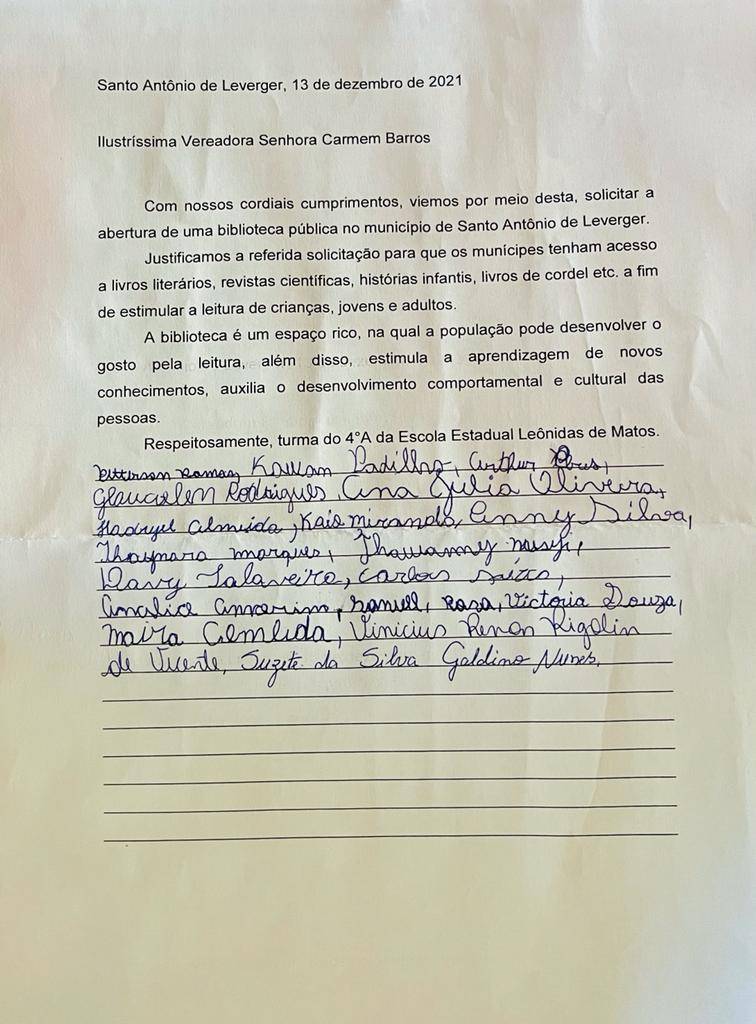 Santo Antônio de Leverger, 13 de dezembro de 2021
Ilustríssima Vereadora Senhora Carmem Barros
Com nossos cordiais cumprimentos, viemos por meio desta, solicitar a
abertura de uma biblioteca pública no município de Santo Antônio de Leverger.
Justificamos a referida solicitação para que os munícipes tenham acesso
a livros literários, revistas científicas, histórias infantis, livros de cordel etc. a fim
de estimular a leitura de crianças, jovens e adultos.
A biblioteca é um espaço rico, na qual a população pode desenvolver o
gosto pela leitura, além disso, estimula a aprendizagem de novos
conhecimentos, auxilia o desenvolvimento comportamental e cultural das
pessoas.
Respeitosamente, turma do 4°A da Escola Estadual Leônidas de Matos.
Kauan Padilha, Arthur
Glaucielen Rodrigues, Ana Julia Oliveira,
Almeida, Kaio Miranda, Anny Silva,
Thaynara marques,
Davy Talaveira, Carlos
Samuel, Rosa, Victoria Souza,
Maira Almeida, Vinicius Renan Rigolin
de Vicente, Suzete da Silva Galdino Nunes.